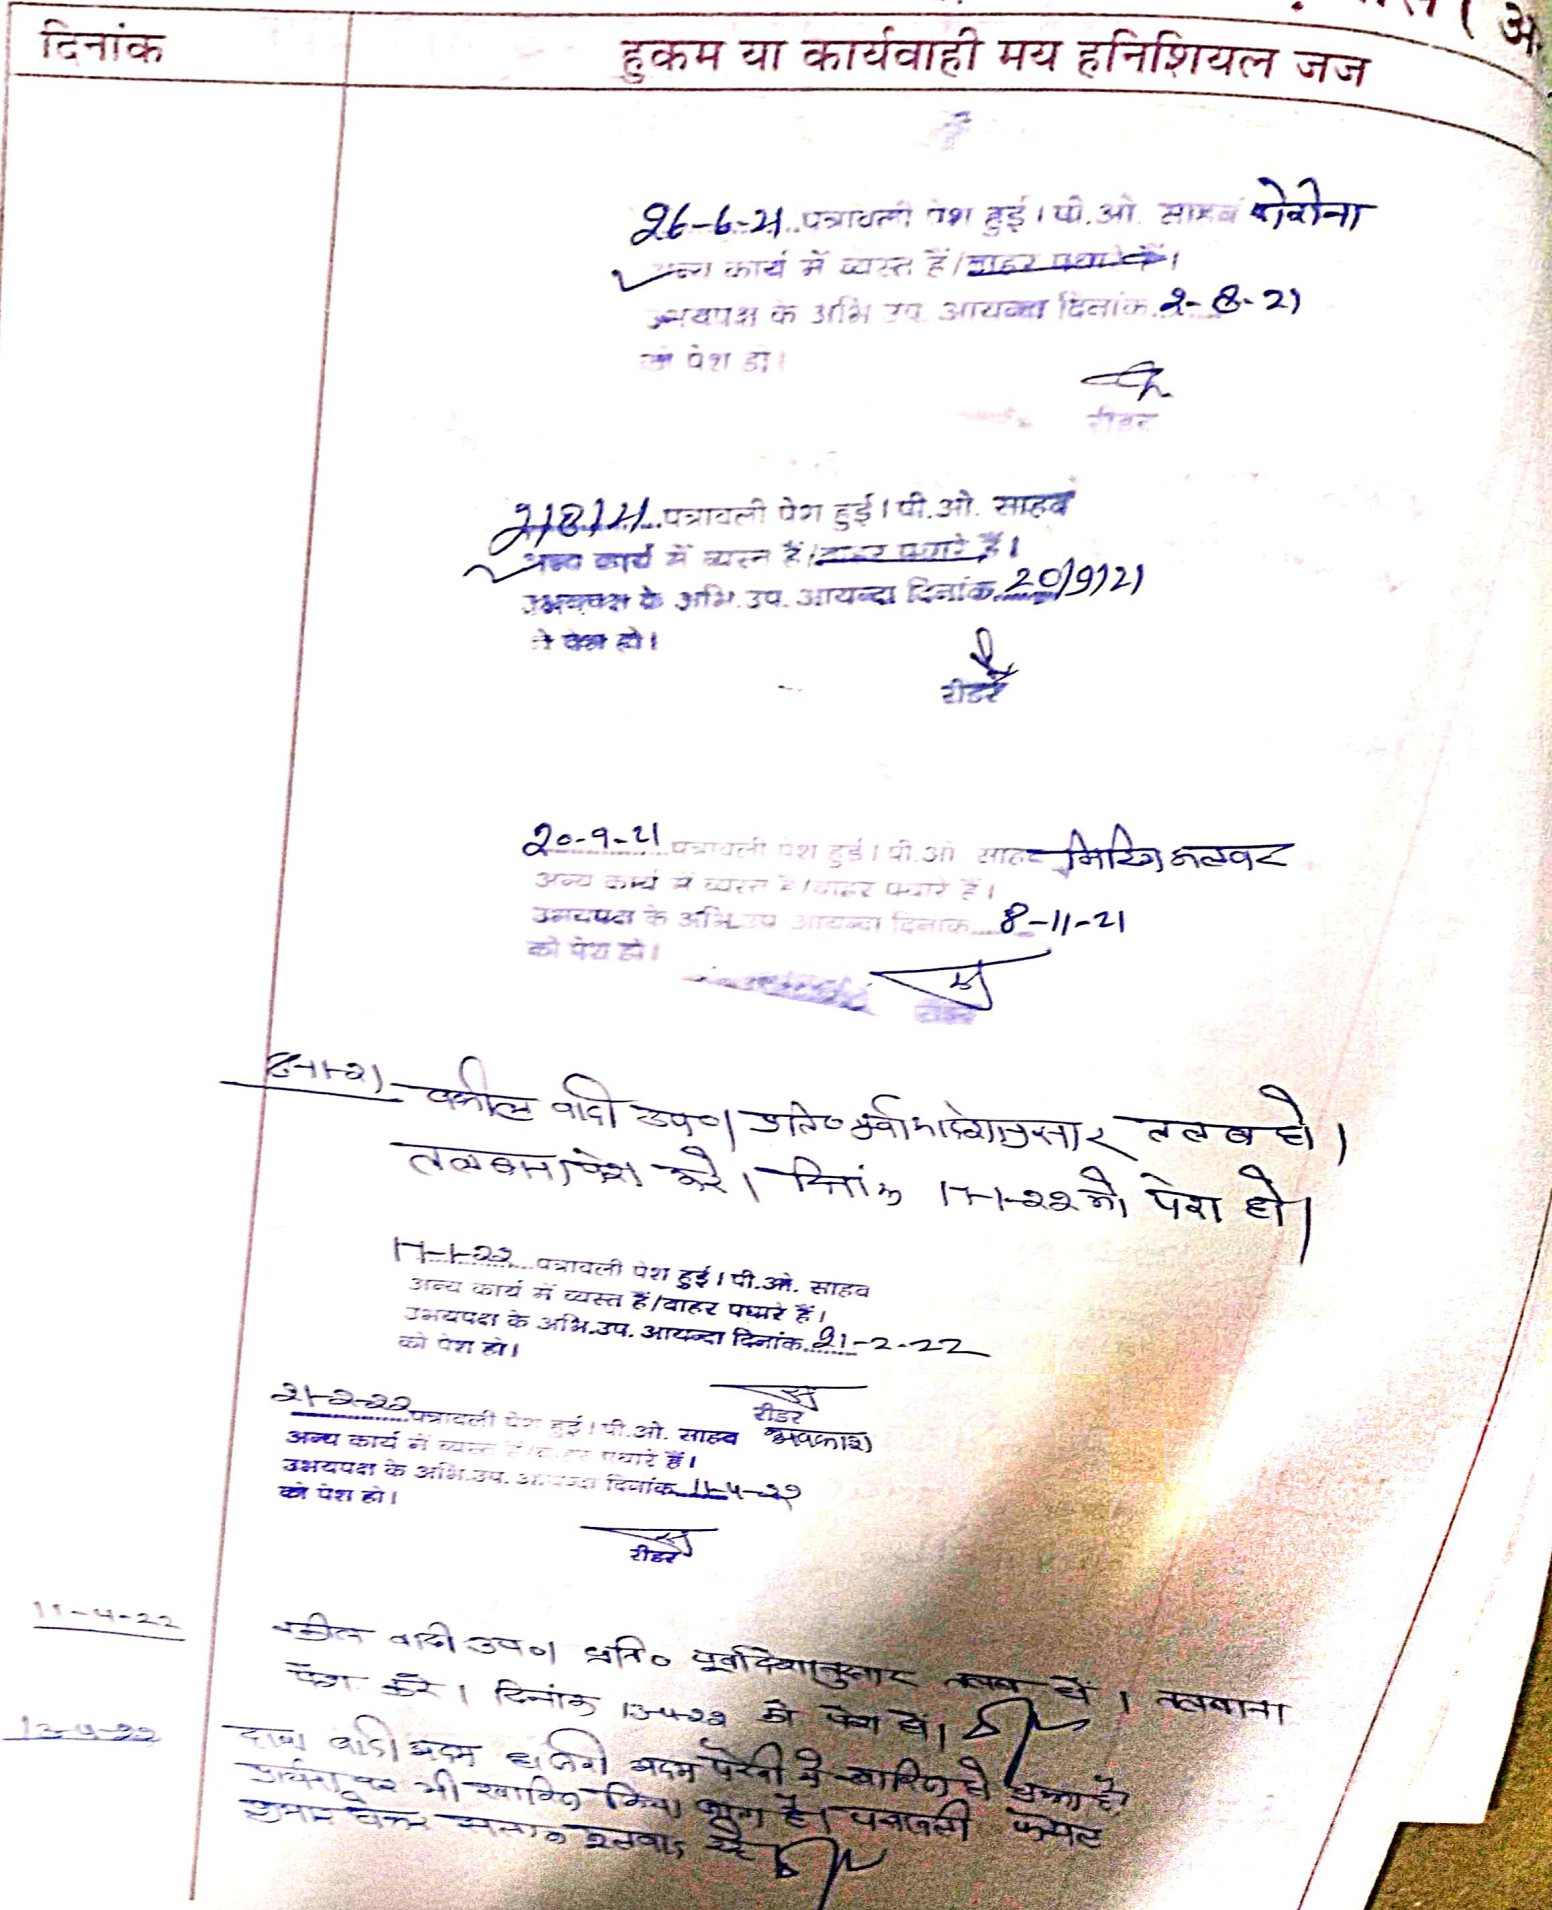 दिनांक
हुकम या कार्यवाही मय हनिशियल जज
26-6-21 पत्रावली पेश हुई। पी.ओ. साहब कोरोना
अन्य कार्य में व्यस्त हैं/बाहर पधारे हैं।
उभयपक्ष के अभि उप. आयन्दा दिनांक 2-8-21
को पेश हो।
रीडर
2/8/21 पत्रावली पेश हुई। पी.ओ. साहब
अन्य कार्य में व्यस्त हैं/बाहर पधारे हैं।
उभयपक्ष के अभि.उप. आयन्दा दिनांक 20/9/21
को पेश हो।
रीडर
20-9-21 पत्रावली पेश हुई। पी.ओ. साहब मिटिंग अलवर
अन्य कार्य में व्यस्त हैं/बाहर पधारे हैं।
उभयपक्ष के अभि.उप आयन्दा दिनांक 8-11-21
को पेश हो।
रीडर
8-11-21 वकील वादी उप०। प्रति० पूर्वादेशानुसार तलब हो।
तलबाना पेश करे। दिनांक 17-1-22 को पेश हो।
17-1-22 पत्रावली पेश हुई। पी.ओ. साहब
अन्य कार्य में व्यस्त हैं/बाहर पधारे हैं।
उभयपक्ष के अभि.उप. आयन्दा दिनांक 21-2-22
को पेश हो।
रीडर
21-2-22 पत्रावली पेश हुई। पी.ओ. साहब अवकाश
अन्य कार्य में व्यस्त हैं/बाहर पधारे हैं।
उभयपक्ष के अभि.उप. आयन्दा दिनांक 11-4-22
को पेश हो।
रीडर
11-4-22 वकील वादी उप०। प्रति० पूर्वादेशानुसार तलब हो। तलबाना
पेश करे। दिनांक 13-4-22 को पेश हो।
13-4-22 दावा वादी अदम हाजरी अदम पैरवी में खारिज हो चुका है।
भी खारिज किया जाता है। पत्रावली फैसल
शुमार होकर